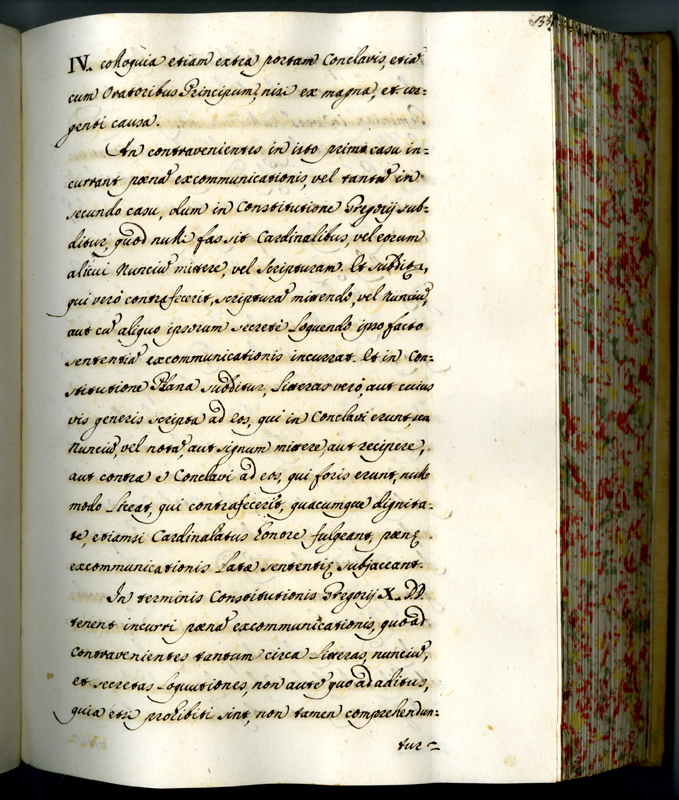 133
IV. colloquia etiam extra portam Conclavis, etiã
cum Oratoribus Principum, nisi ex magna, et ur=
genti causa.
An contravenientes in isto primo casu in=
currant pœnã excommunicationis, vel tantũ in
secundo casu, dum in Constitutione Gregorij sub=
ditur, quod nulli fas sit Cardinalibus, vel eorum
alicui Nunciũ mittere, vel Scripturam. Et subdita,
qui verò contrafecerit, scripturã mittendo, vel nunciũ,
aut cũ aliquo ipsorum secretè loquendo ipso facto
sententiã excommunicationis incurrat. Et in Con=
stitutione Piana subditur, litteras verò, aut cuius
vis generis scripta ad eos, qui in Conclavi erunt, seu
Nunciũ, vel notã aut signum mittere aut recipere,
aut contra è Conclavi ad eos, qui foris erunt, nullo
modo liceat, qui contrafecerit, quacumque dignita=
te, etiamsi Cardinalatus honore fulgeant, pœnę
excommunicationis latæ sententię subjaceant.
In terminis Constitutionis Gregorij X. DD.
tenent incurri pœnã excommunicationis, quoad
contravenientes tantum circa litteras, nunciũ,
et secretas loquutiones, non autẽ quo ad aditus,
quia etsi prohibiti sint, non tamen comprehendun=
tur=